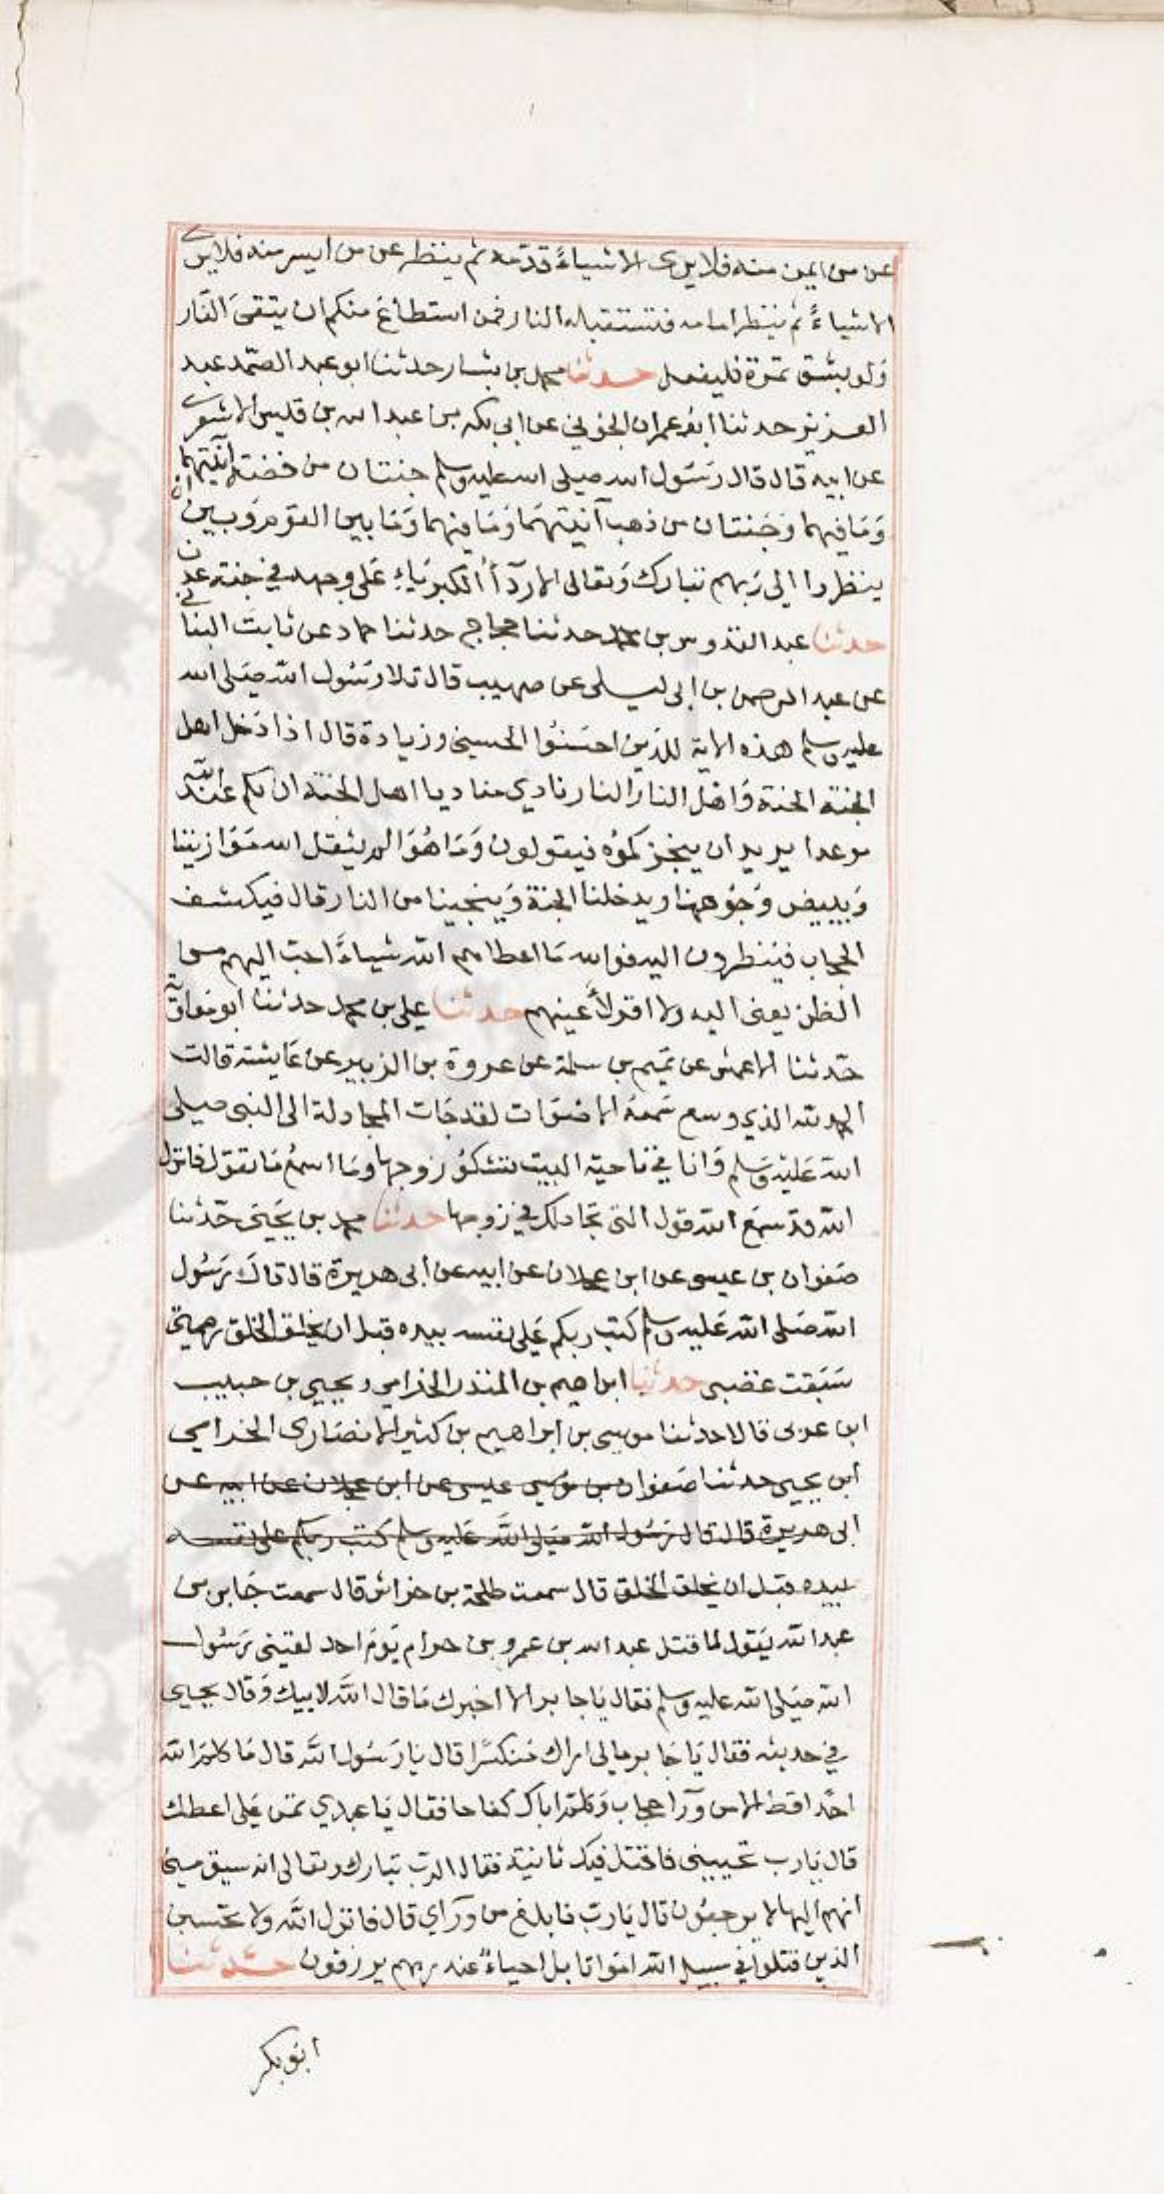 عن من ايمن منه فلا يرى الا شياءً قدمه ثم ينظر عن من ايسر منه فلا يرى
الا شياءً ثم ينظر امامه فتستقبله النار فمن استطاع منكم ان يتقى النار
ولو بشق تمرة فليفعل حدثنا محمد بن بشار حدثنا ابو عبد الصمد عبد
العزيز حدثنا ابو عمران الجوني عن ابي بكر بن عبد الله بن قليس الاشعرى
عن ابيه قال قال رسول الله صلى الله عليه وسلم جنتان من فضة آنيتهما
وما فيهما وجنتان من ذهب آنيتهما وما فيهما وما بين القوم وبين ان
ينظروا الى ربهم تبارك وتعالى الا ردآأ الكبرياء على وجهه في جنة عدن
حدثنا عبد القدوس بن محمد حدثنا حجاج حدثنا حماد عن ثابت البناني
عن عبد الرحمن بن ابى ليلى عن صهيب قال تلا رسول الله صلى الله
عليه وسلم هذه الاية للذين احسنوا الحسنى وزيادة قال اذا دخل اهل
الجنة الجنة واهل النار النار نادي مناد يا اهل الجنة ان لكم عند الله
موعدا يريد ان ينجزكموه فيقولون وما هو الم يثقل الله موازيننا
ويبيض وجوهنا ويدخلنا الجنة وينجينا من النار قال فيكشف
الحجاب فينظرون اليه فوالله ما اعطاهم الله شياءً احب اليهم من
النظر يعنى اليه ولا اقر لأعينهم حدثنا علي بن محمد حدثنا ابو معاوية
حدثنا الاعمش عن تميم بن سلمة عن عروة بن الزبير عن عايشة قالت
الحمد لله الذي وسع سمعه الاصوات لقد جات المجادلة الى النبي صلى
الله عليه وسلم وانا في ناحية البيت تشكو زوجها وما اسمع ما تقول فانزل
الله قد سمع الله قول التى تجادلك في زوجها حدثنا محمد بن يحيى حدثنا
صفوان بن عيسى عن ابن عجلان عن ابيه عن ابى هريرة قال قال رسول
الله صلى الله عليه وسلم كتب ربكم على نفسه بيده قبل ان يخلق الخلق رحمتي
سبقت غضبى حدثنا ابراهيم بن المنذر الحزامي ويحيى بن حبيب
ابن عربى قالا حدثنا موسى بن ابراهيم بن كثير الانصارى الحرامى
ابن يحيى حدثنا صفوان بن موسى عيسى عن ابن عجلان عن ابيه عن
ابى هريرة قال قال رسول الله صلى الله عليه وسلم كتب ربكم على نفسه
بيده قبل ان يخلق الخلق قال سمعت طلحة بن خراش قال سمعت جابر بن
عبد الله يقول لما قتل عبد الله بن عمرو بن حرام يوم احد لقينى رسول
الله صلى الله عليه وسلم فقال يا جابر الا اخبرك ما قال الله لابيك وقال يحيى
في حديثه فقال يا جابر مالى اراك منكسرا قال يا رسول الله قال ما كلم الله
احدا قط الا من ورآا حجاب وكلم اباك كفاحا فقال يا عبدي تمن على اعطك
قال يارب تحيينى فاقتل فيك ثانية فقال الرب تبارك وتعالى انه سبق منى
انهم اليها لا يرجعون قال يارب فابلغ من ورآي قال فانزل الله ولا تحسبن
الذين قتلوا في سبيل الله امواتا بل احياءً عند ربهم يرزقون حدثنا
ابو بكر